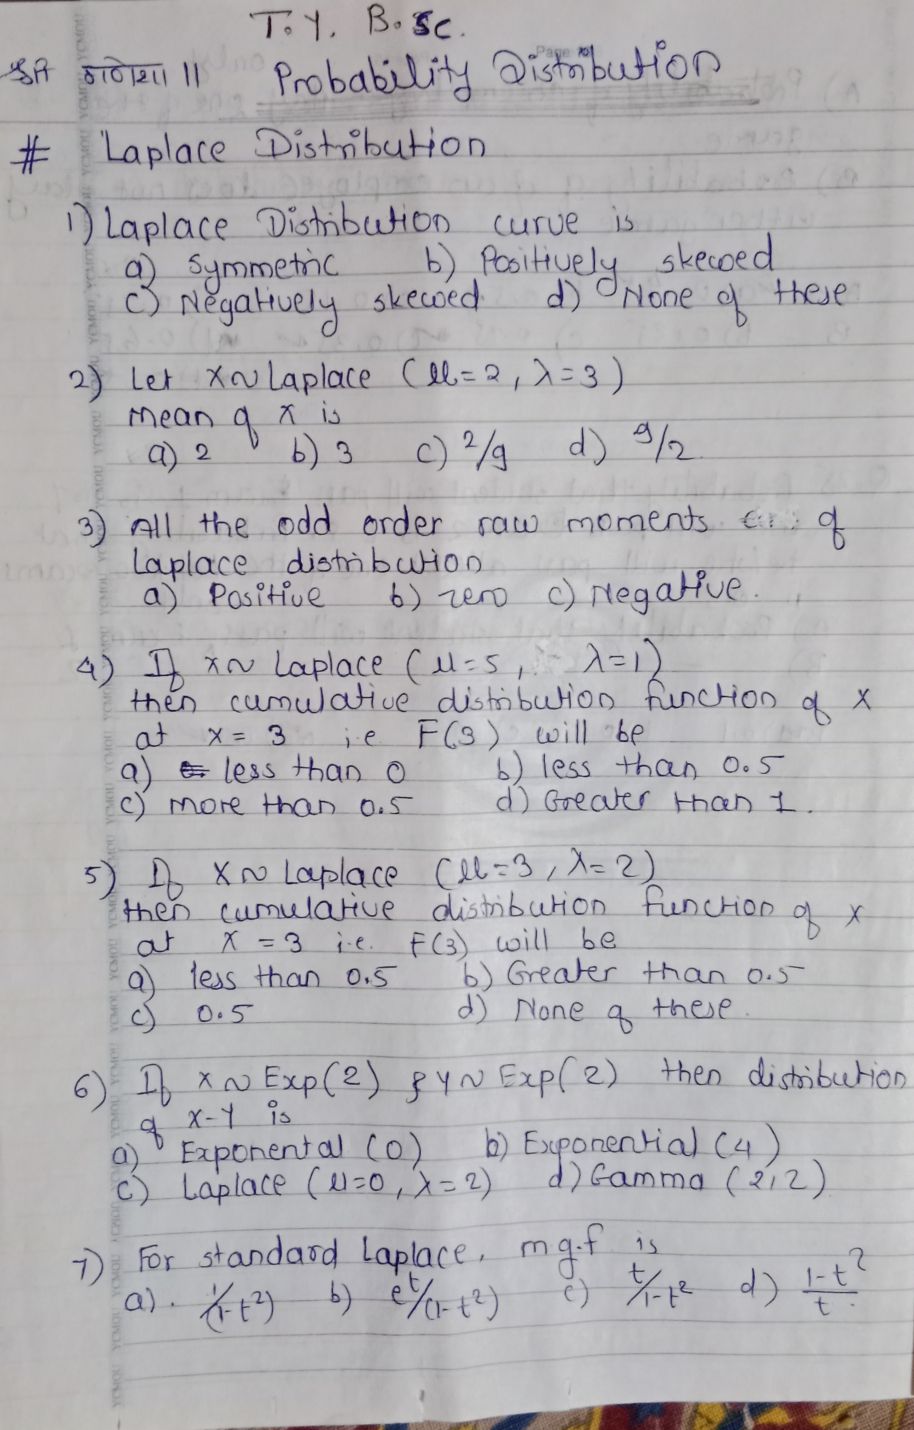 T.Y. B.Sc.
श्री गणेशा ॥ Probability Distribution
# Laplace Distribution
1) Laplace Distribution curve is
a) symmetric b) Positively skewed
c) Negatively skewed d) None of these
2) Let X~Laplace (μ=2, λ=3)
mean of x is
a) 2 b) 3 c) 2/9 d) 9/2
3) All the odd order raw moments of
Laplace distribution
a) Positive b) zero c) Negative.
4) If x~ Laplace (μ=5, λ=1)
then cumulative distribution function of x
at x = 3 i.e F(3) will be
a) less than 0 b) less than 0.5
c) more than 0.5 d) Greater than 1.
5) If X~ Laplace (μ=3, λ=2)
then cumulative distribution function of x
at x = 3 i.e. F(3) will be
a) less than 0.5 b) Greater than 0.5
c) 0.5 d) None of these.
6) If x~Exp(2) & Y~Exp(2) then distribution
of x-Y is
a) Exponental (0) b) Exponential (4)
c) Laplace (μ=0, λ=2) d) Gamma (2,2)
7) For standard Laplace, mg.f is
a). 1/(1-t²) b) e^t/(1-t²) c) t/1-t² d) 1-t²/t.
YCMOU YCMOU YCMOU YCMOU YCMOU